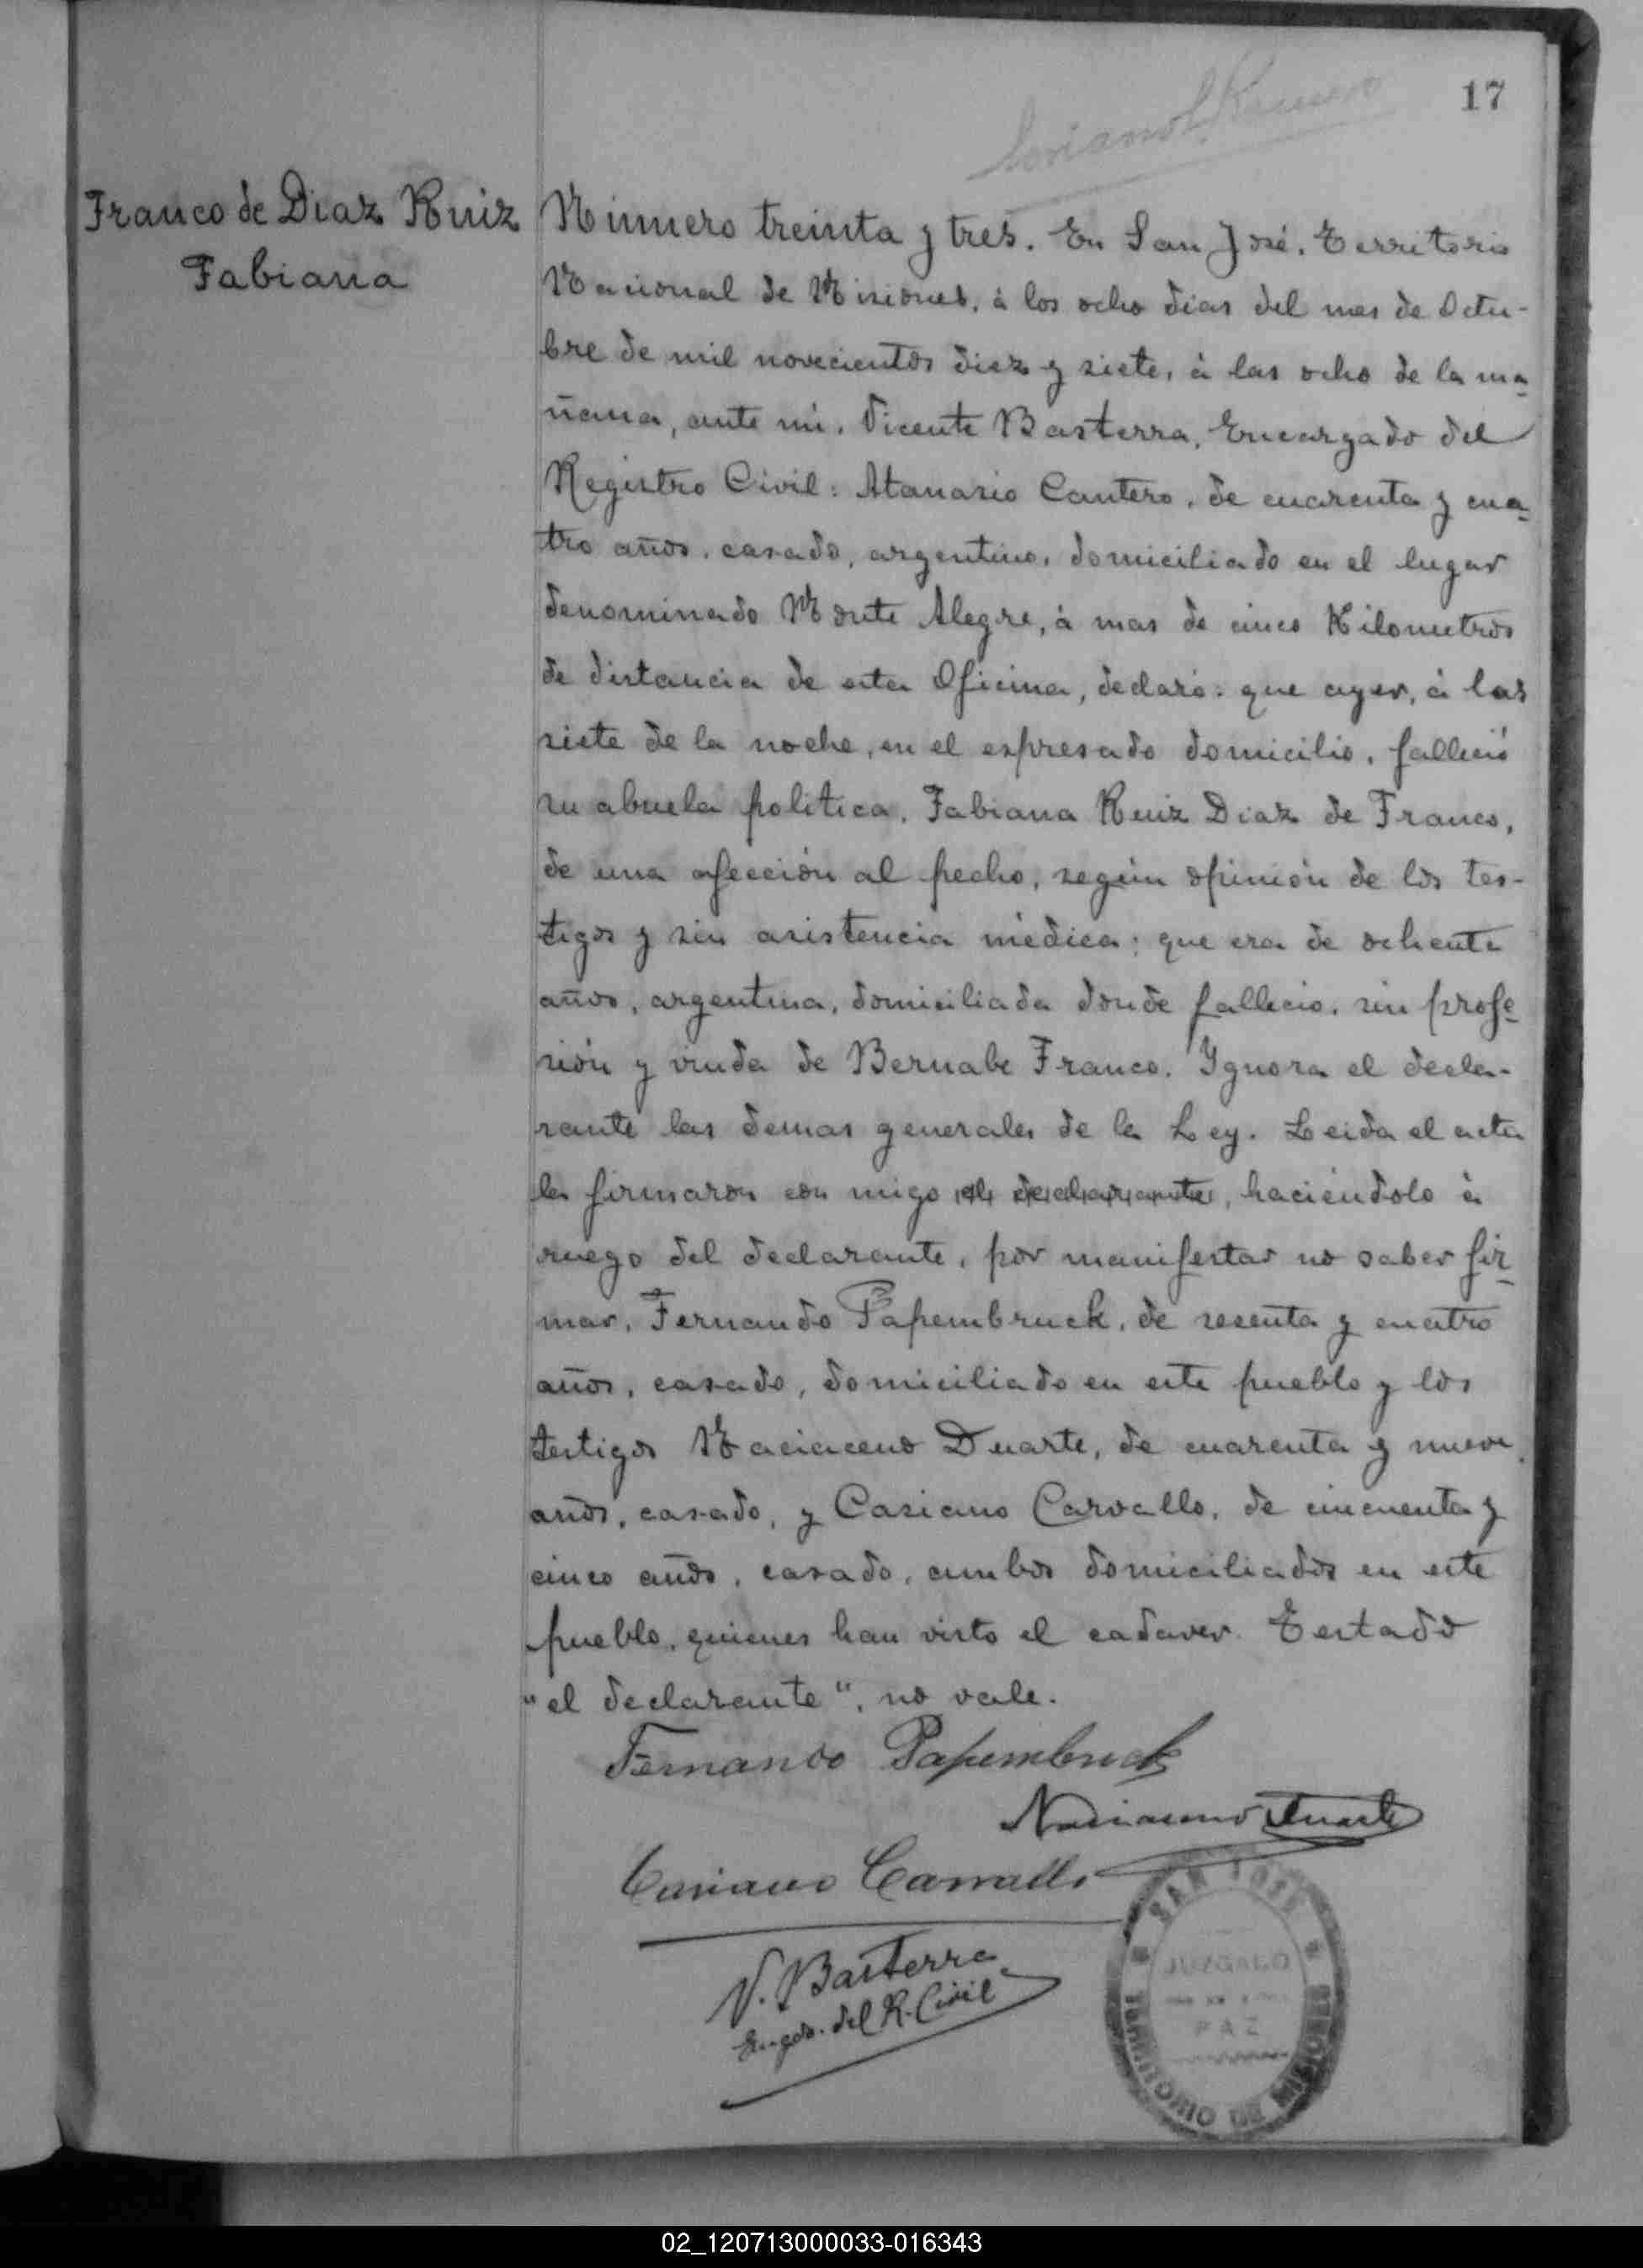 17
Franco de Diaz Ruiz
Fabiana
Número treinta y tres. En San José, Territorio
Nacional de Misiones, á los ocho dias del mes de Octu-
bre de mil novecientos diez y siete, á las ocho de la ma-
ñana, ante mi, Vicente Basterra, Encargado del
Registro Civil: Atanasio Cantero, de cuarenta y cua-
tro años, casado, argentino, domiciliado en el lugar
denominado Monte Alegre, á mas de cinco Kilometros
de distancia de esta Oficina, declaró: que ayer, á las
siete de la noche, en el espresado domicilio, falleció
su abuela politica, Fabiana Ruiz Diaz de Franco,
de una afección al pecho, según opinión de los tes-
tigos y sin asistencia médica; que era de ochenta
años, argentina, domiciliada donde fallecio, sin profe-
sión y viuda de Bernabe Franco. Ygnora el decla-
rante las demas generales de la Ley. Leida el acta
la firmaron con migo el declarante, haciéndolo á
ruego del declarante, por manifestar no saber fir-
mar, Fernando Papembruck, de sesenta y cuatro
años, casado, domiciliado en este pueblo y los
testigos Naciaceno Duarte, de cuarenta y nueve
años, casado, y Casiano Carvallo, de cincuenta y
cinco años, casado, ambos domiciliados en este
pueblo, quienes han visto el cadaver. Testado
"el declarante", no vale.
Fernando Papembruck
Naciaceno Duarte
Casiano Carvallo
V. Basterra
Engdo. del R. Civil
SAN JOSE
JUZGADO
PAZ
TERRITORIO DE MISIONES
02_120713000033-016343